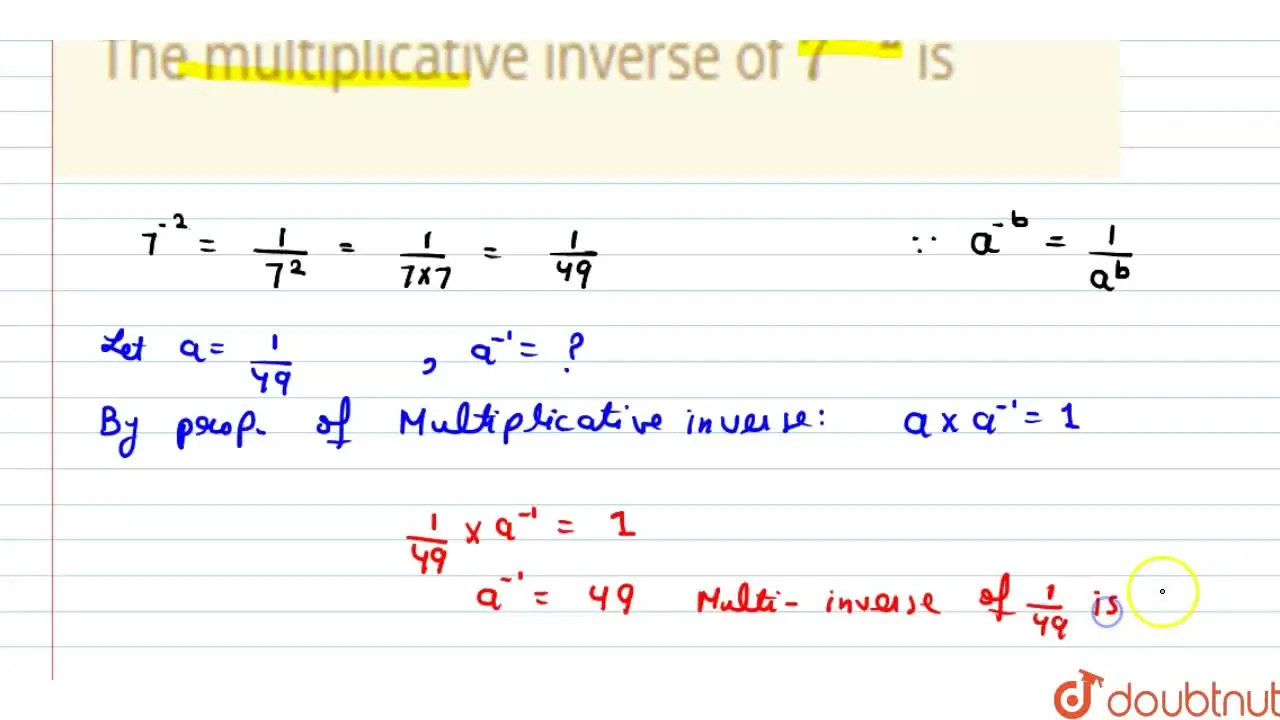 The multiplicative inverse of 7⁻² is
7⁻² = 1/7² = 1/7×7 = 1/49 ∵ a⁻ᵇ = 1/aᵇ
Let a = 1/49 , a⁻¹ = ?
By prop. of Multiplicative inverse: a × a⁻¹ = 1
1/49 × a⁻¹ = 1
a⁻¹ = 49 Multi- inverse of 1/49 is
doubtnut